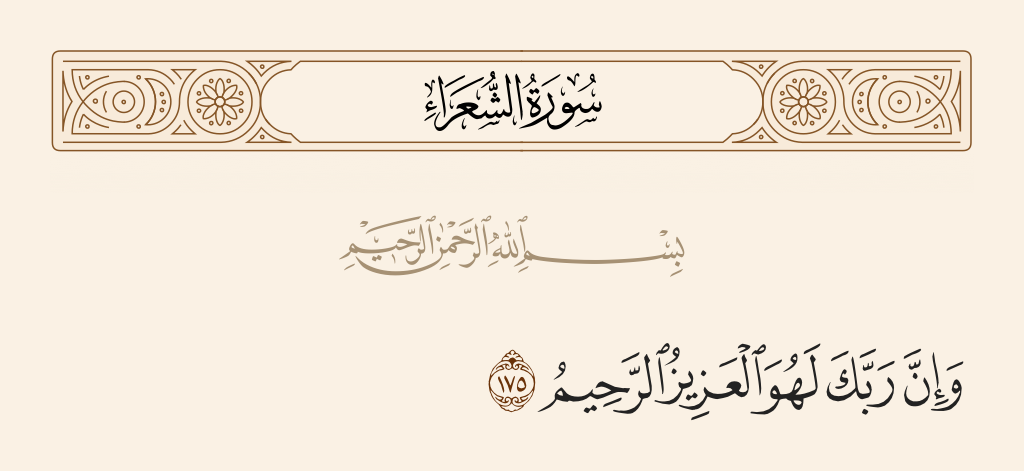 سُورَةُ الشُّعَرَاءِ
بِسْمِ ٱللَّهِ ٱلرَّحْمَٰنِ ٱلرَّحِيمِ
وَإِنَّ رَبَّكَ لَهُوَ ٱلْعَزِيزُ ٱلرَّحِيمُ ١٧٥